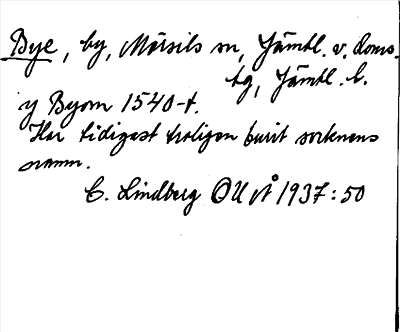 Bye, by, Mörsils sn, Jämtl. v. doms.
tg, Jämtl. l.
y Byom 1540-t.
Har tidigast troligen burit socknens
namn.
C. Lindberg OUÅ 1937:50